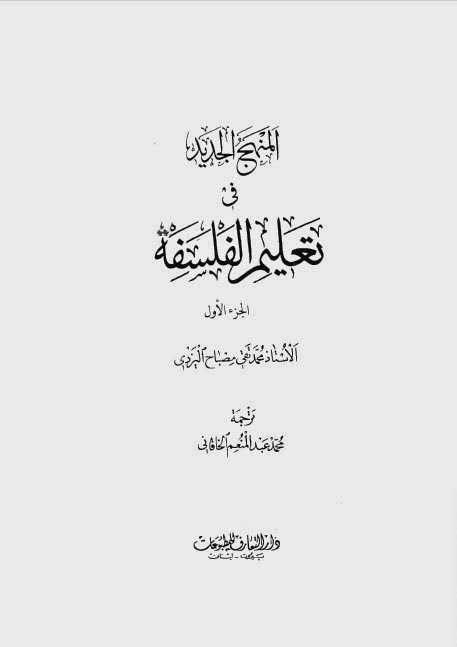 المنهج الجديد
في
تعليم الفلسفة
الجزء الأول
الأستاذ محمد تقي مصباح اليزدي
ترجمة
محمد عبد المنعم الخاقاني
دار التعارف للمطبوعات
بيروت - لبنان